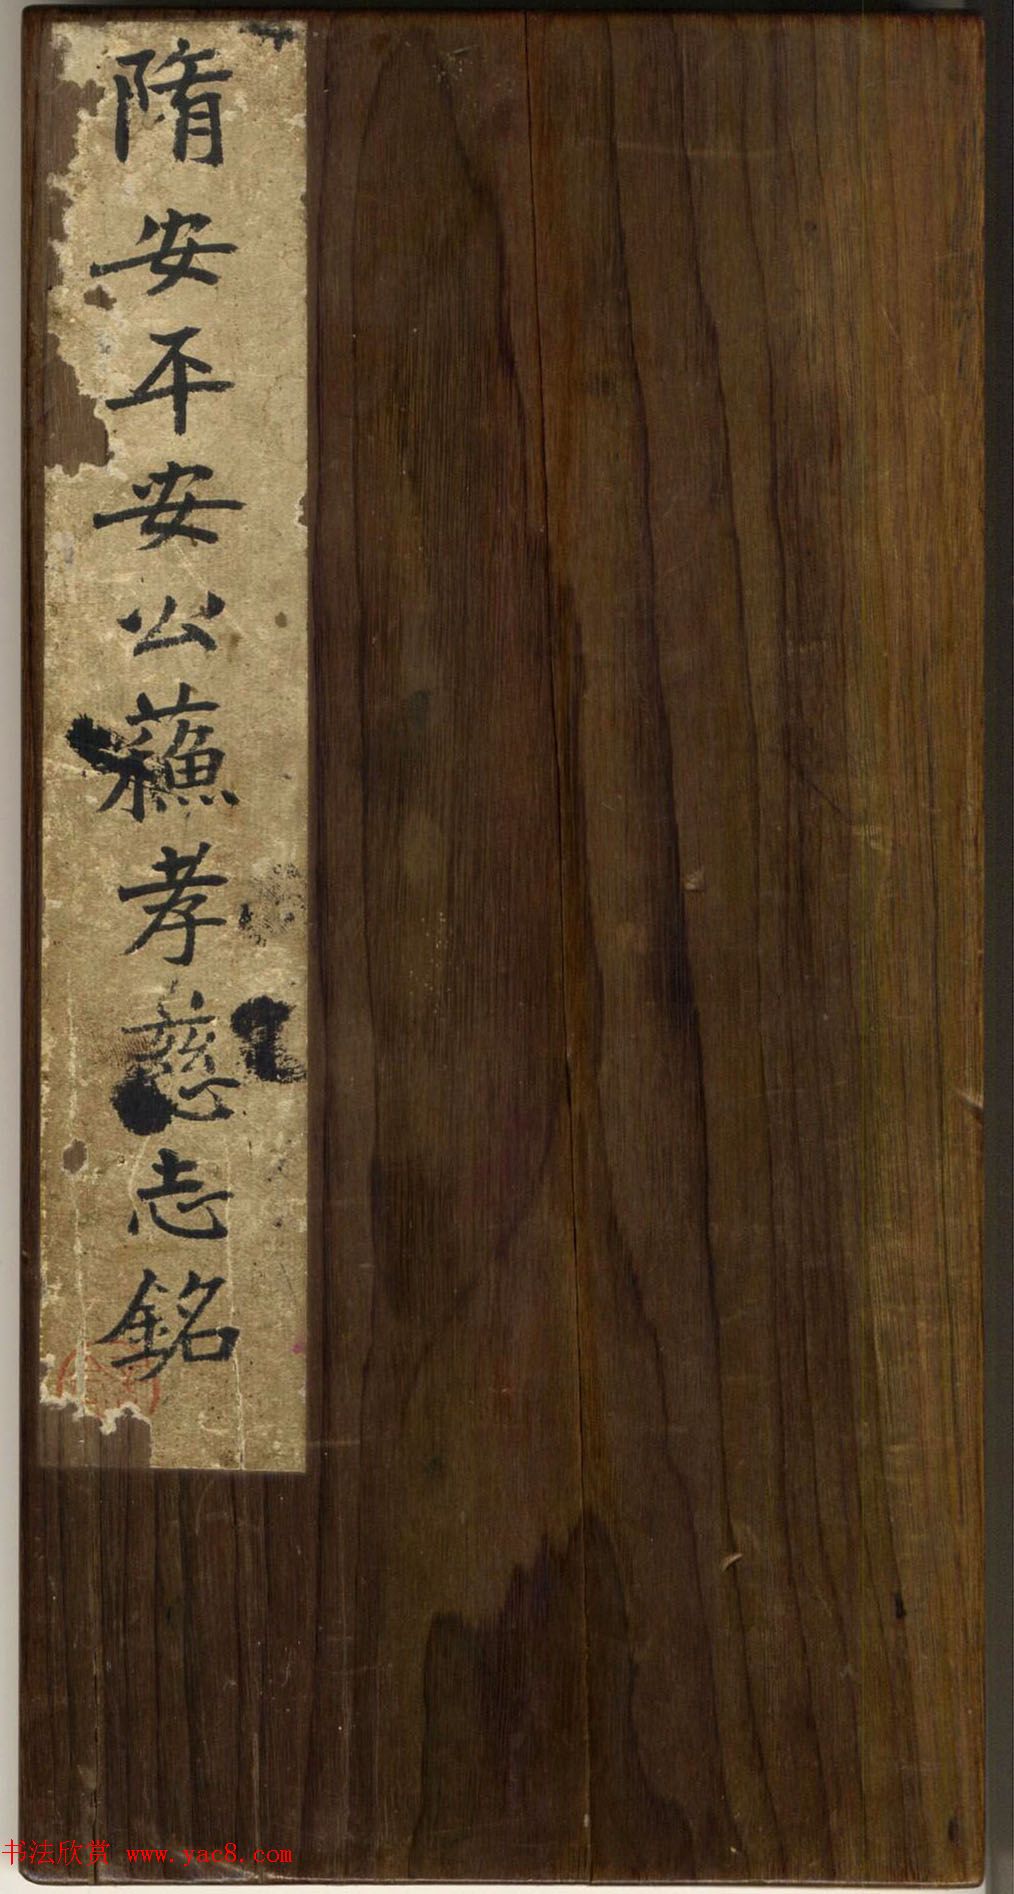 隋安平安公蘓孝慈志銘
书法欣赏 www.yac8.com